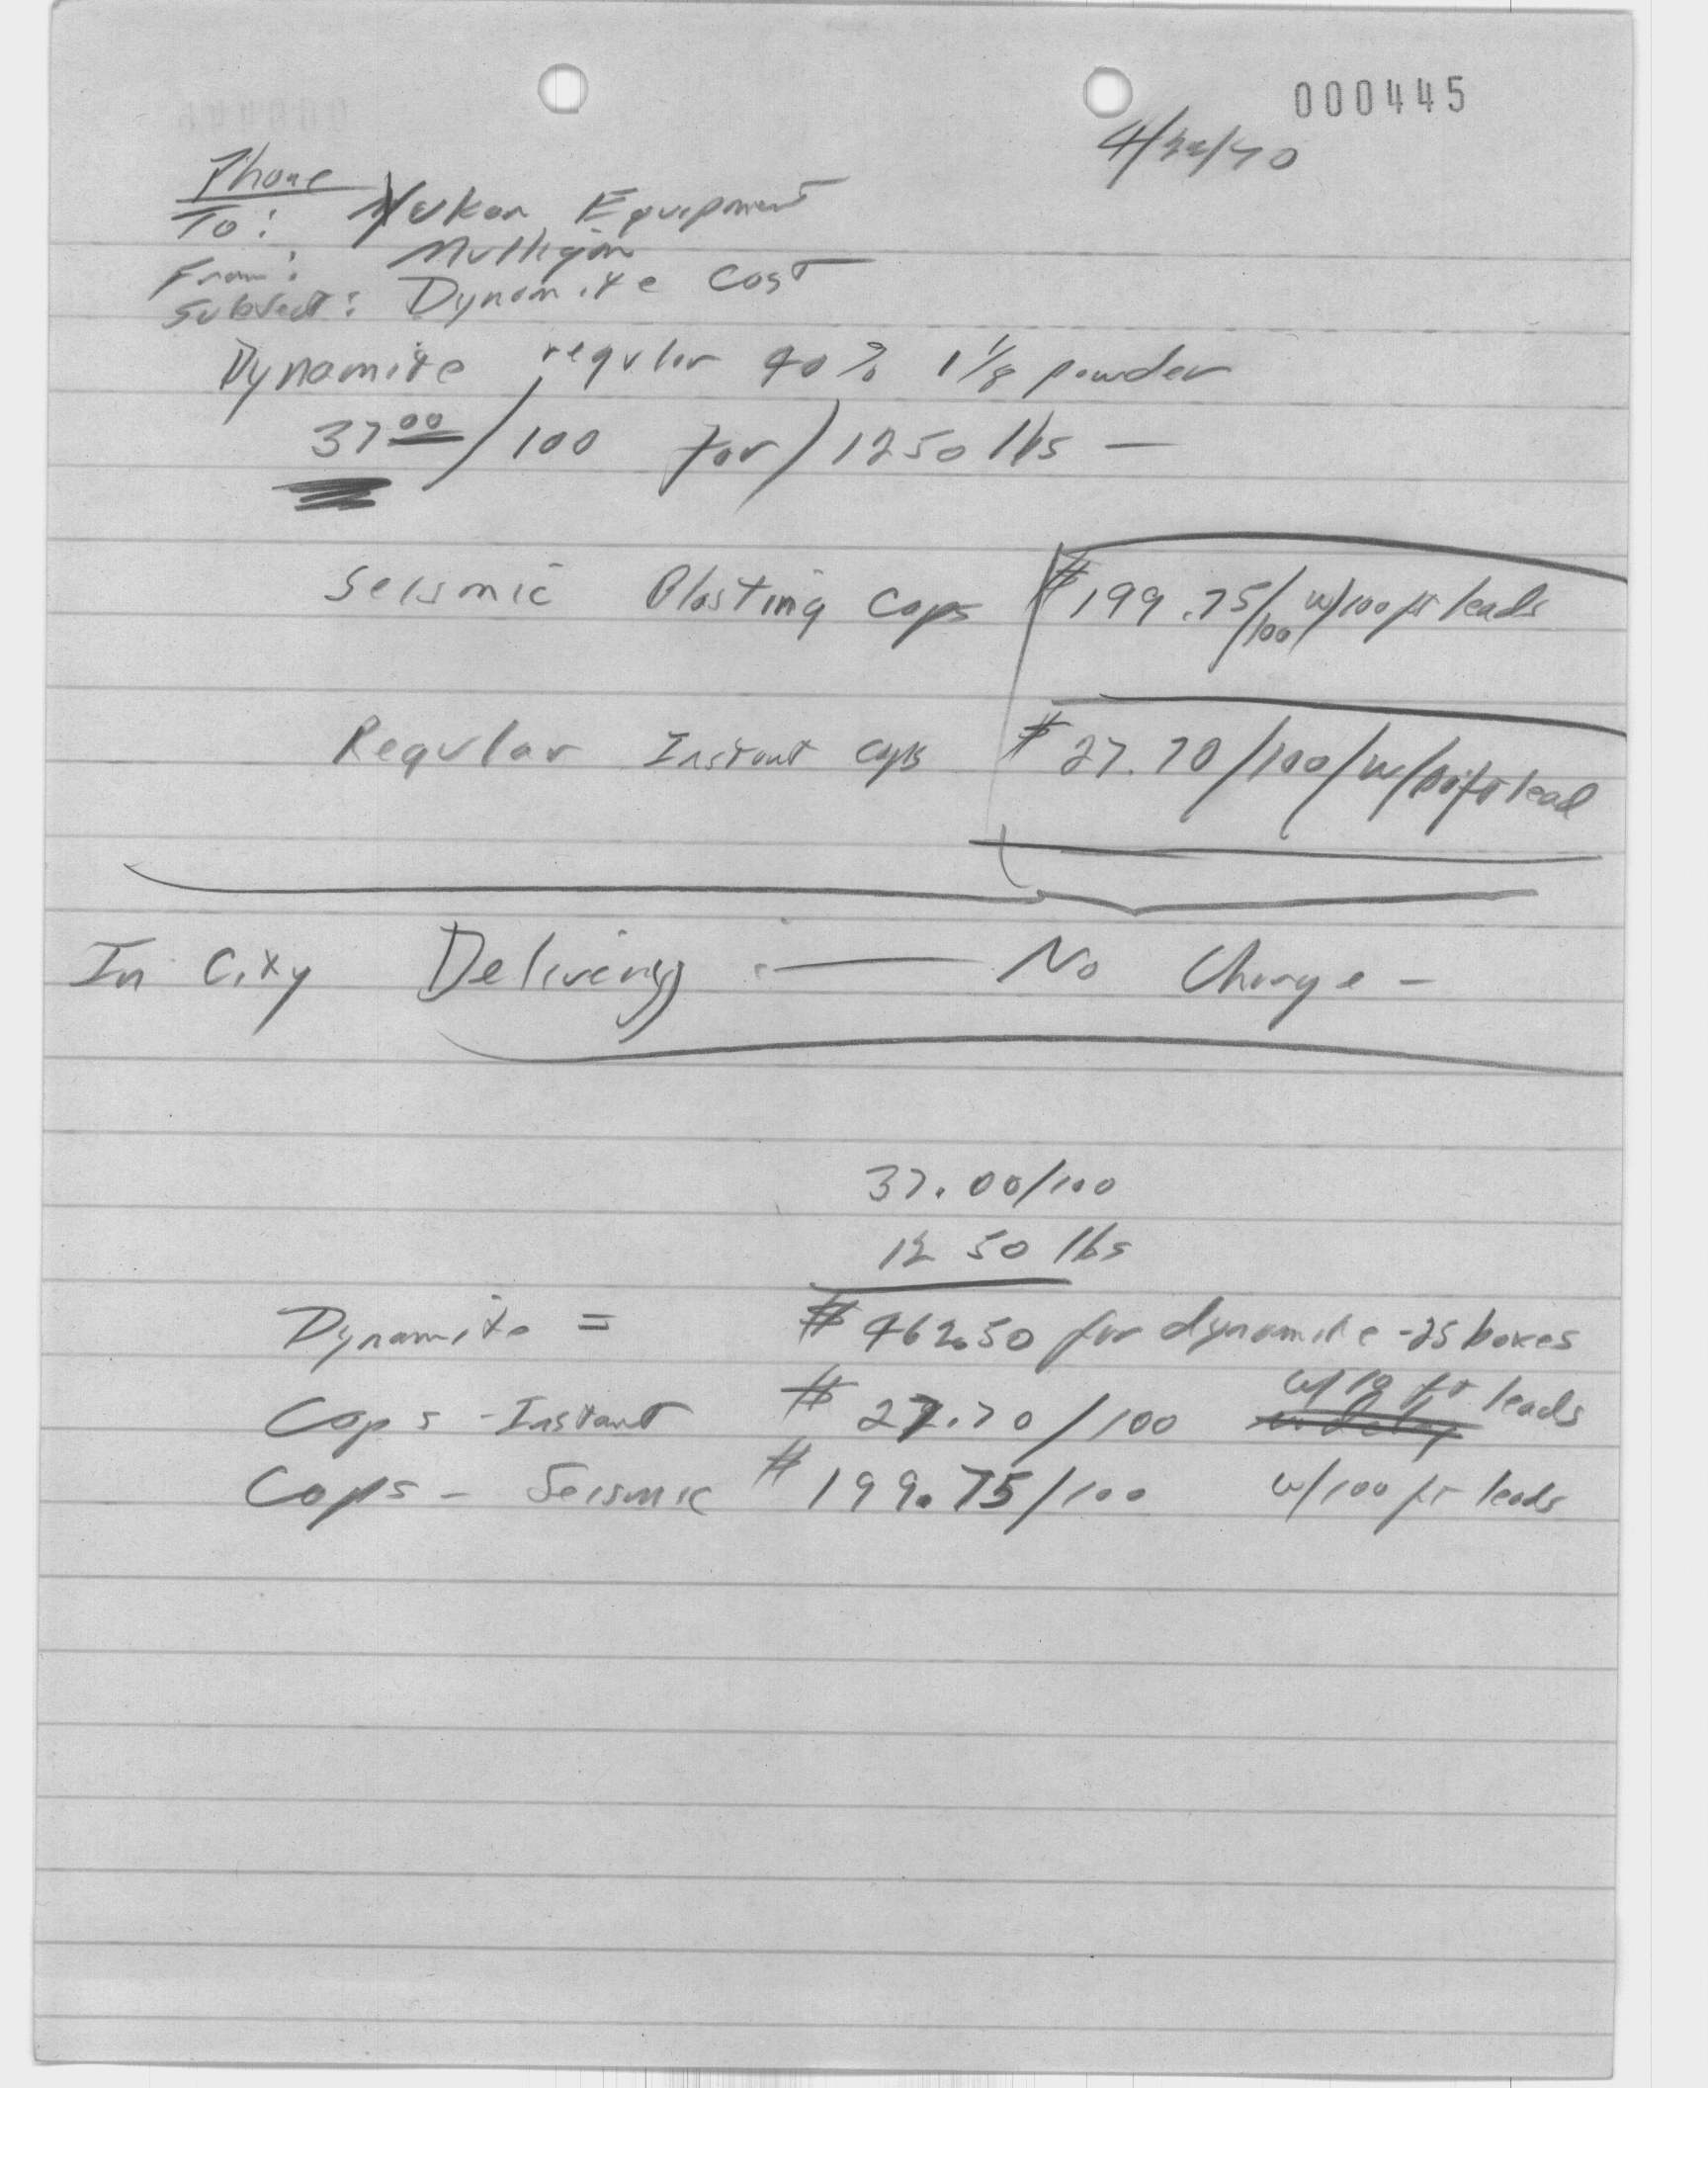 000445
4/22/70
Phone
To: Yukon Equipment
From: Mulligan
Subject: Dynamite Cost
Dynamite regular 40% 1 1/8 powder
37 00/100 for/1250 lbs —
Seismic Blasting Caps $199.75/100 w/100 ft leads
Regular Instant Caps $27.70/100/w/ ft lead
In City Delivery :— No Charge -
37.00/100
1250 lbs
Dynamite = $462.50 for dynamite - 25 boxes
Caps - Instant $27.70/100 w/10 ft leads
Caps - Seismic $199.75/100 w/100 ft leads